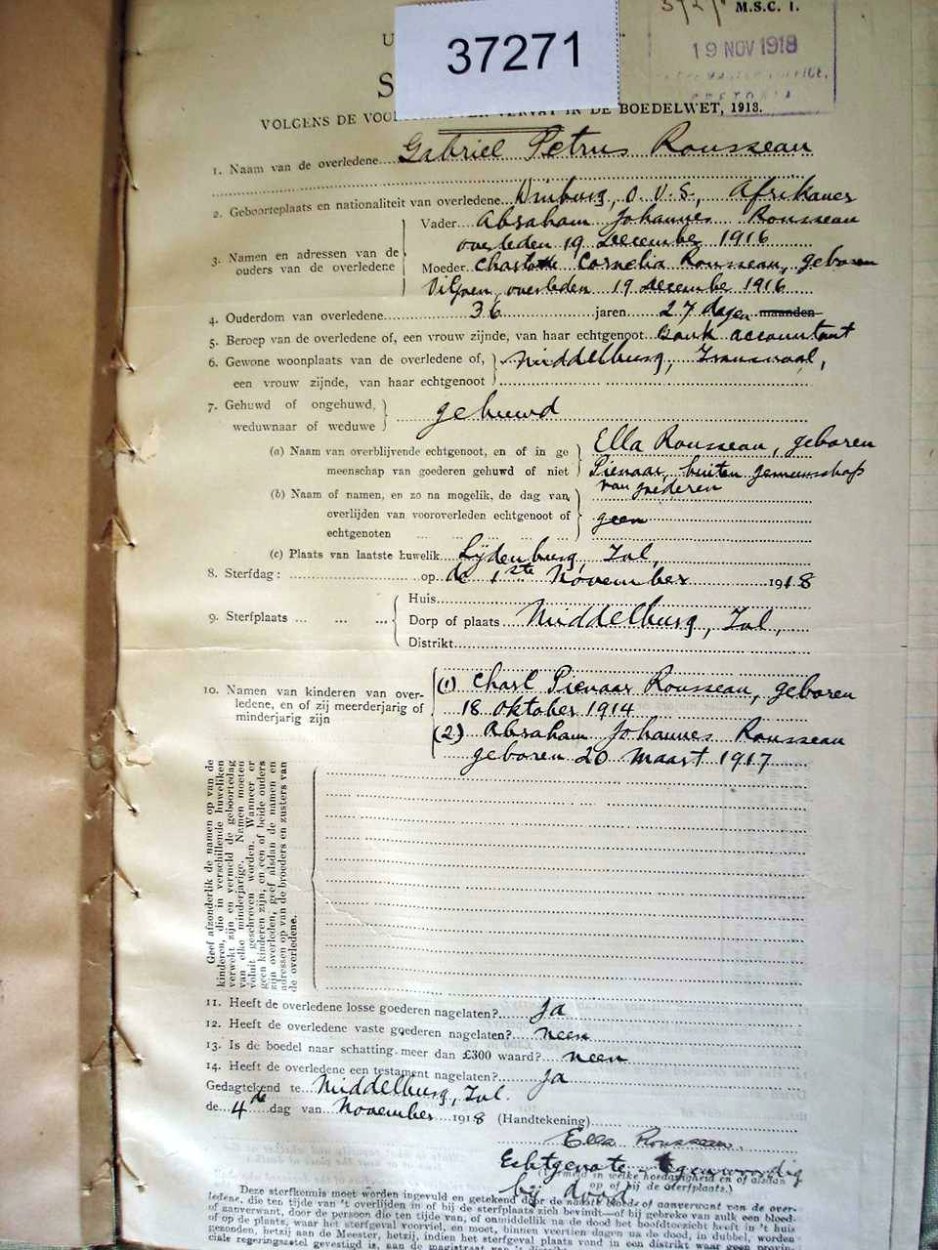 37271
M.S.C. 1.
19 NOV 1918
VOLGENS DE VOO VERVAT IN DE BOEDELWET, 1913.
1. Naam van de overledene Gabriel Petrus Rousseau
2. Geboorteplaats en nationaliteit van overledene Winburg, O.V.S., Afrikaner
3. Namen en adressen van de ouders van de overledene
Vader Abraham Johannes Rousseau
overleden 19 December 1916
Moeder Charlotte Cornelia Rousseau, geboren
Viljoen, overleden 19 December 1916
4. Ouderdom van overledene 36 jaren 27 dagen maanden
5. Beroep van de overledene of, een vrouw zijnde, van haar echtgenoot Bank accountant
6. Gewone woonplaats van de overledene of, Middelburg, Transvaal,
een vrouw zijnde, van haar echtgenoot
7. Gehuwd of ongehuwd, gehuwd
weduwnaar of weduwe
(a) Naam van overblijvende echtgenoot, en of in ge Ella Rousseau, geboren
meenschap van goederen gehuwd of niet Pienaar, buiten gemeenschap
van goederen
(b) Naam of namen, en zo na mogelik, de dag van
overlijden van vooroverleden echtgenoot of geen
echtgenoten
(c) Plaats van laatste huwelik Lydenburg, Tvl,
8. Sterfdag: op de 1ste November 1918
9. Sterfplaats
Huis
Dorp of plaats Middelburg, Tvl,
Distrikt
10. Namen van kinderen van over-
ledene, en of zij meerderjarig of
minderjarig zijn
(1) Charl Pienaar Rousseau, geboren
18 Oktober 1914
(2) Abraham Johannes Rousseau
geboren 20 Maart 1917
Geef afzonderlik de namen op van de
kinderen, die in verschillende huweliken
verwekt zijn en vermeld de geboortedag
van elke minderjarige. Namen moeten
voluit geschreven worden. Wanneer er
geen kinderen zijn, en een of beide ouders
zijn overleden, geef alsdan de namen en
adressen op van de broeders en zusters van
de overledene.
11. Heeft de overledene losse goederen nagelaten? Ja
12. Heeft de overledene vaste goederen nagelaten? neen
13. Is de boedel naar schatting meer dan £300 waard? neen
14. Heeft de overledene een testament nagelaten? Ja
Gedagtekend te Middelburg, Tvl.
de 4de dag van November 1918 (Handtekening)
Ella Rousseau.
Echtgenote - tegenwoordig
bij dood
op of bij de sterfplaats.)
Deze sterfkennis moet worden ingevuld en getekend door de naaste bloed- of aanverwant van de over-
ledene, die ten tijde van 't overlijden in of bij de sterfplaats zich bevindt—of bij gebreke van zulk een bloed-
of aanverwant, door de persoon die ten tijde van, of onmiddellik na de dood het hoofdtoezicht heeft in 't huis
of op de plaats, waar het sterfgeval voorviel, en moet, binnen veertien dagen na de dood, in dubbel, worden
gezonden, hetzij aan de Meester, hetzij, indien het sterfgeval plaats vond in een distrikt waar geen